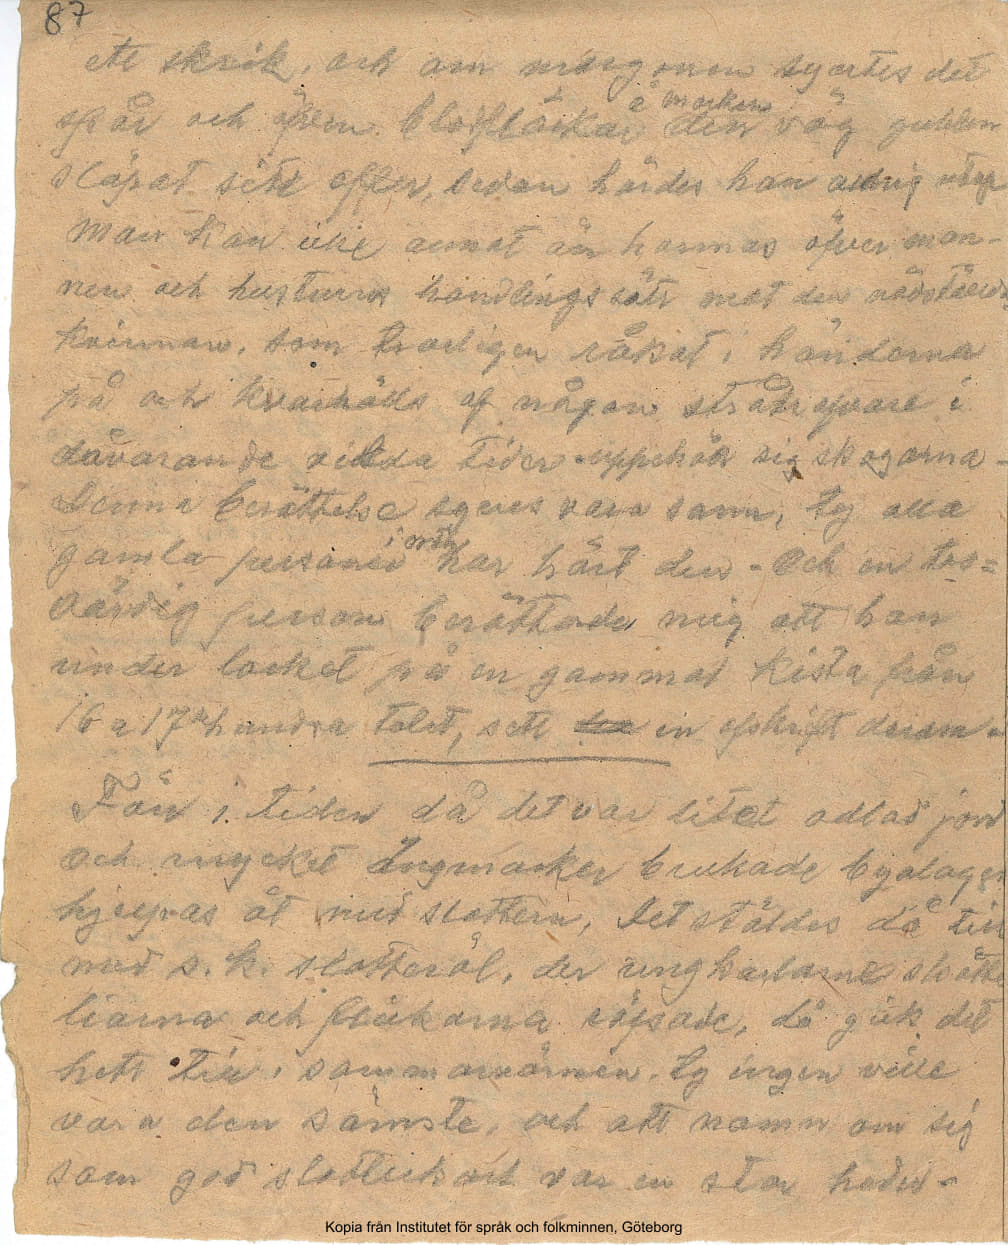 87
ett skrik, och om morgonen syntes det
spår och äfven blodfläckar å marken den väg gubben
släpat sitt offer, sedan hördes han aldrig
Man kan icke annat än harmas öfver man-
nen och hustruns handlingssätt mot den nödstälda
kvinnan, som troligen råkat i händerna
på och kvarhölls af någon stråtröfvare i
dåvarande vilda tider uppehöll sig skogarna -
Denna berättelse syens vara sann, ty alla
gamla personer i ort har hört den - Och en tro=
värdig person berättade mig att han
under locket på en gammal kista från
16 a 17 hundra talet, sett en afskrift derom -
Förr i tiden då det var litet odlad jord
och mycket ängmarker brukade byalaget
hjelpas åt med slottern, Det stäldes då till
med s.k. slotteröl, der ungkarlarne slogo
liarna och flickorna räfsade, då gick det
hett till i sommarvärmen. Ty ingen ville
vara den sämste, och att namn om sig
som god slotterkarl var en stor heder -
Kopia från Institutet för språk och folkminnen, Göteborg